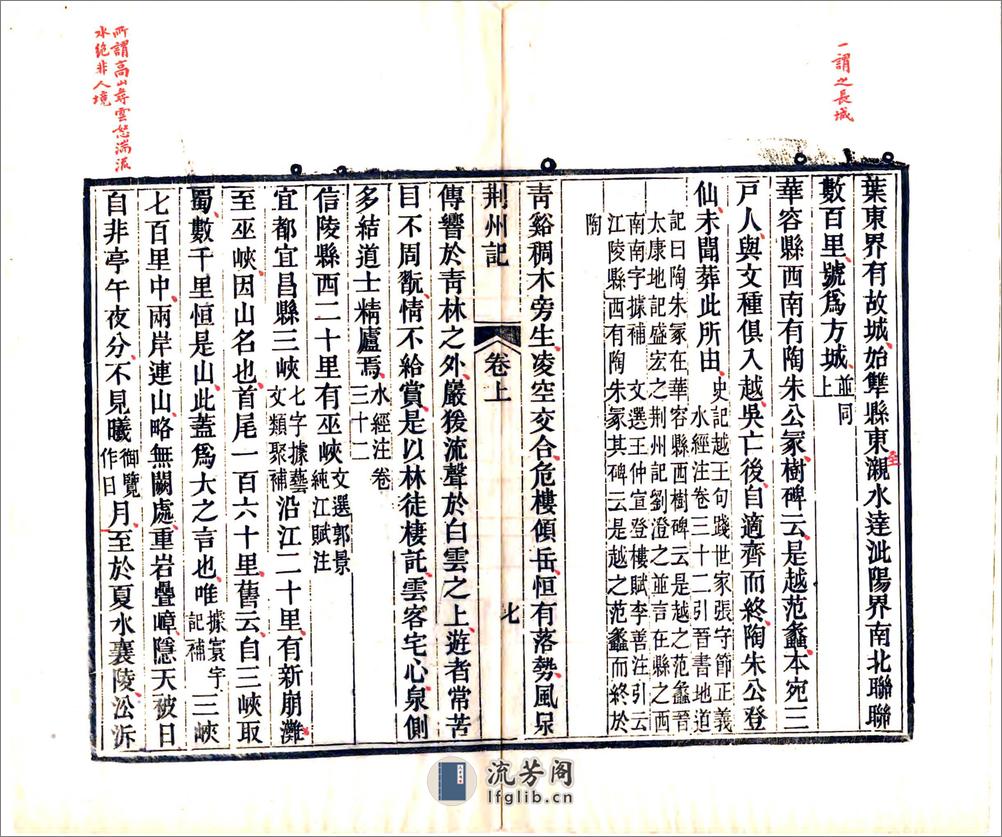 一謂之長城
葉東界有故城始犨縣東
至
瀙水達泚陽界南北聯聯
數百里號爲方城並同
上
華容縣西南有陶朱公冢樹碑云是越范蠡本宛三
戸人與文種俱入越吳亡後自適齊而終陶朱公登
仙未聞葬此所由史記越王句踐世家張守節正義
水經注卷三十二引晉書地道
記曰陶朱冢在華容縣西樹碑云是越之范蠡晉
太康地記盛宏之荆州記劉澄之並言在縣之西
南南字據補 文選王仲宣登樓賦李善注引云
江陵縣西有陶朱冢其碑云是越之范蠡而終於
陶
青谿稠木旁生凌空交合危樓傾岳恒有落勢風泉
荆州記
卷上
七
傳響於青林之外巖猨流聲於白雲之上遊者常苦
目不周翫情不給賞是以林徒棲託雲客宅心泉側
多結道士精廬焉水經注卷
三十二
信陵縣西二十里有巫峽文選郭景
純江賦注
宜都宜昌縣三峽七字據藝
文類聚補沿江二十里有新崩灘
至巫峽因山名也首尾一百六十里舊云自三峽取
蜀數千里恒是山此蓋爲大之言也唯據寰宇
記補三峽
七百里中兩岸連山略無闕處重岩疊嶂隱天被日
自非亭午夜分不見曦御覽
作日月至於夏水襄陵沿泝
所謂高山尋雲怒湍流
水絶非人境
流芳阁
lfglib.cn